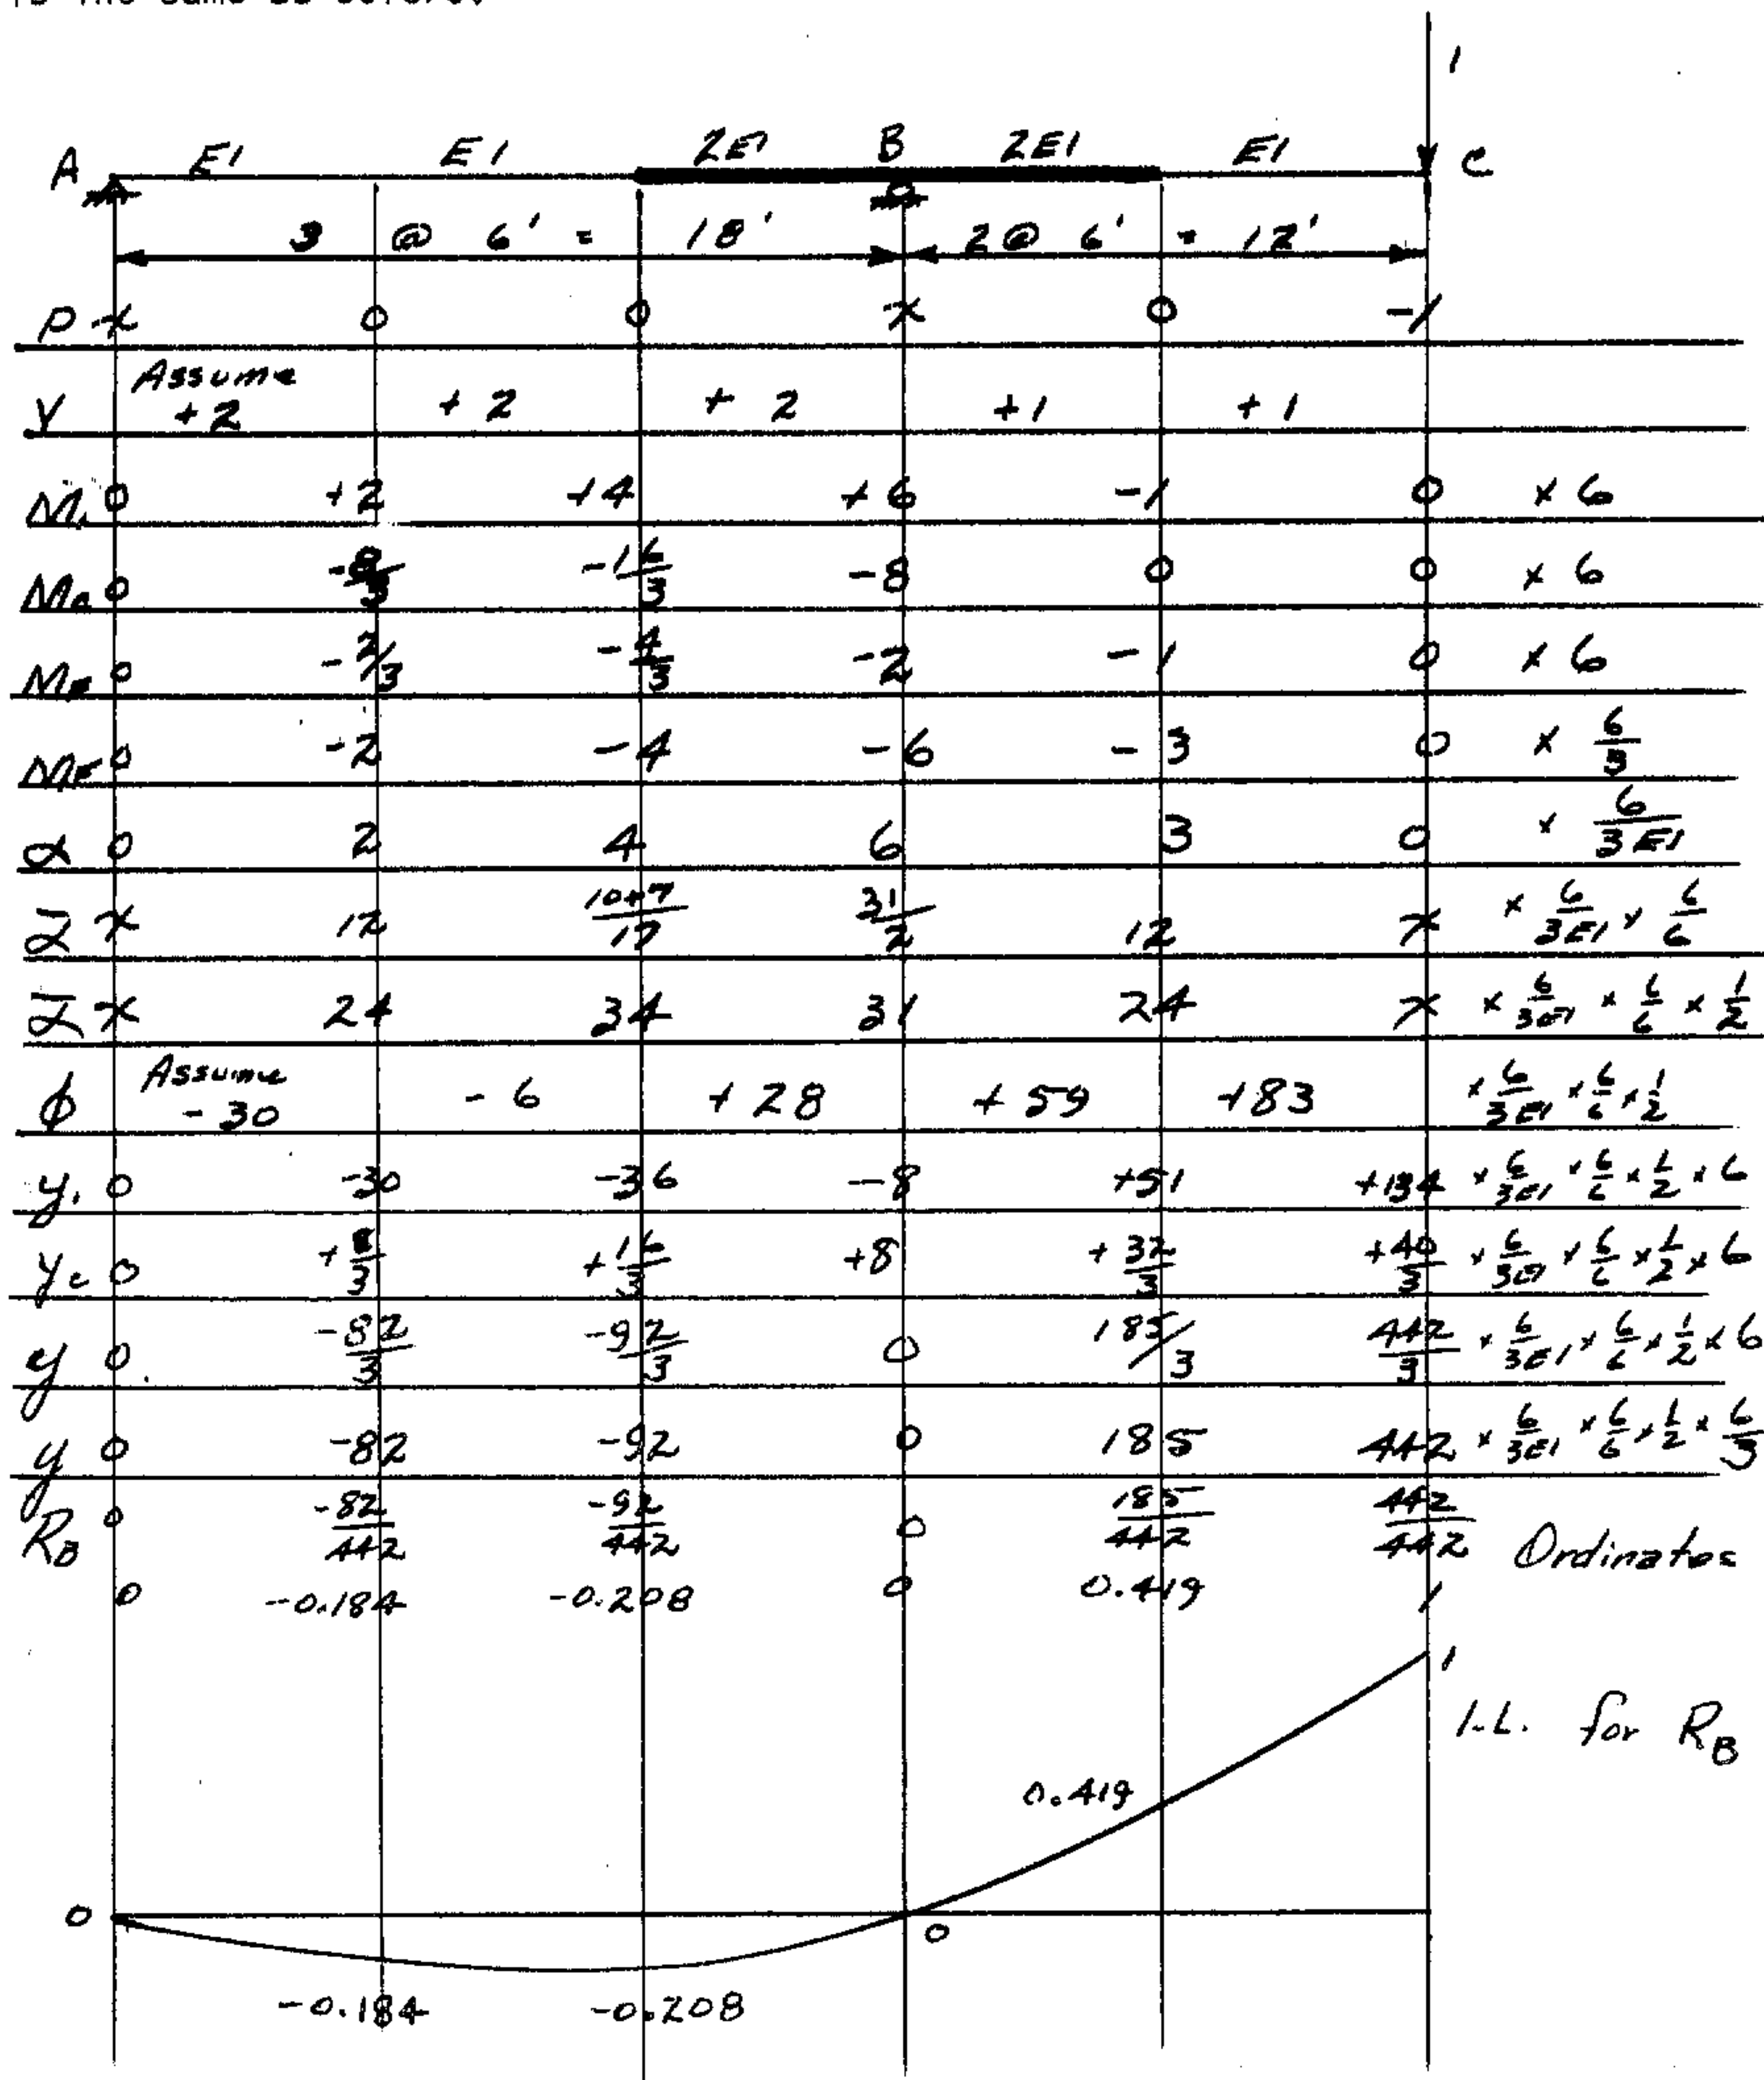 1
A E1 E1 2E1 B 2E1 E1 C
3 @ 6' = 18' 2 @ 6' = 12'
P x 0 0 x 0 -1
Assume
V +2 +2 +2 +1 +1
M₁ 0 +2 +4 +6 -1 0 x 6
0 -8/3 -16/3 -8 0 0 x 6
0 -2/3 -4/3 -2 -1 0 x 6
0 -2 -4 -6 -3 0 x 6/3
α 0 2 4 6 3 0 x 6/3E1
ᾱ x 12 10+7/17 31/2 12 x x 6/3E1 x 6/6
ᾱ x 24 34 31 24 x x 6/3E1 x 6/6 x 1/2
Assume
ϕ -30 -6 +28 +59 +83 x 6/3E1 x 6/6 x 1/2
y₁ 0 -30 -36 -8 +51 +134 x 6/3E1 x 6/6 x 1/2 x 6
yc 0 +8/3 +16/3 +8 +32/3 +40/3 x 6/3E1 x 6/6 x 1/2 x 6
y 0 -82/3 -92/3 0 185/3 442/3 x 6/3E1 x 6/6 x 1/2 x 6
y 0 -82 -92 0 185 442 x 6/3E1 x 6/6 x 1/2 x 6/3
R_B 0 -82/442 -92/442 0 185/442 442/442 Ordinates
0 -0.184 -0.208 0 0.419 1
1
I.L. for R_B
0.419
0 0
-0.184 -0.208